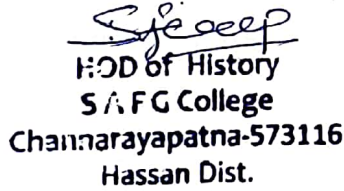 HOD of History
S A F G College
Channarayapatna-573116
Hassan Dist.